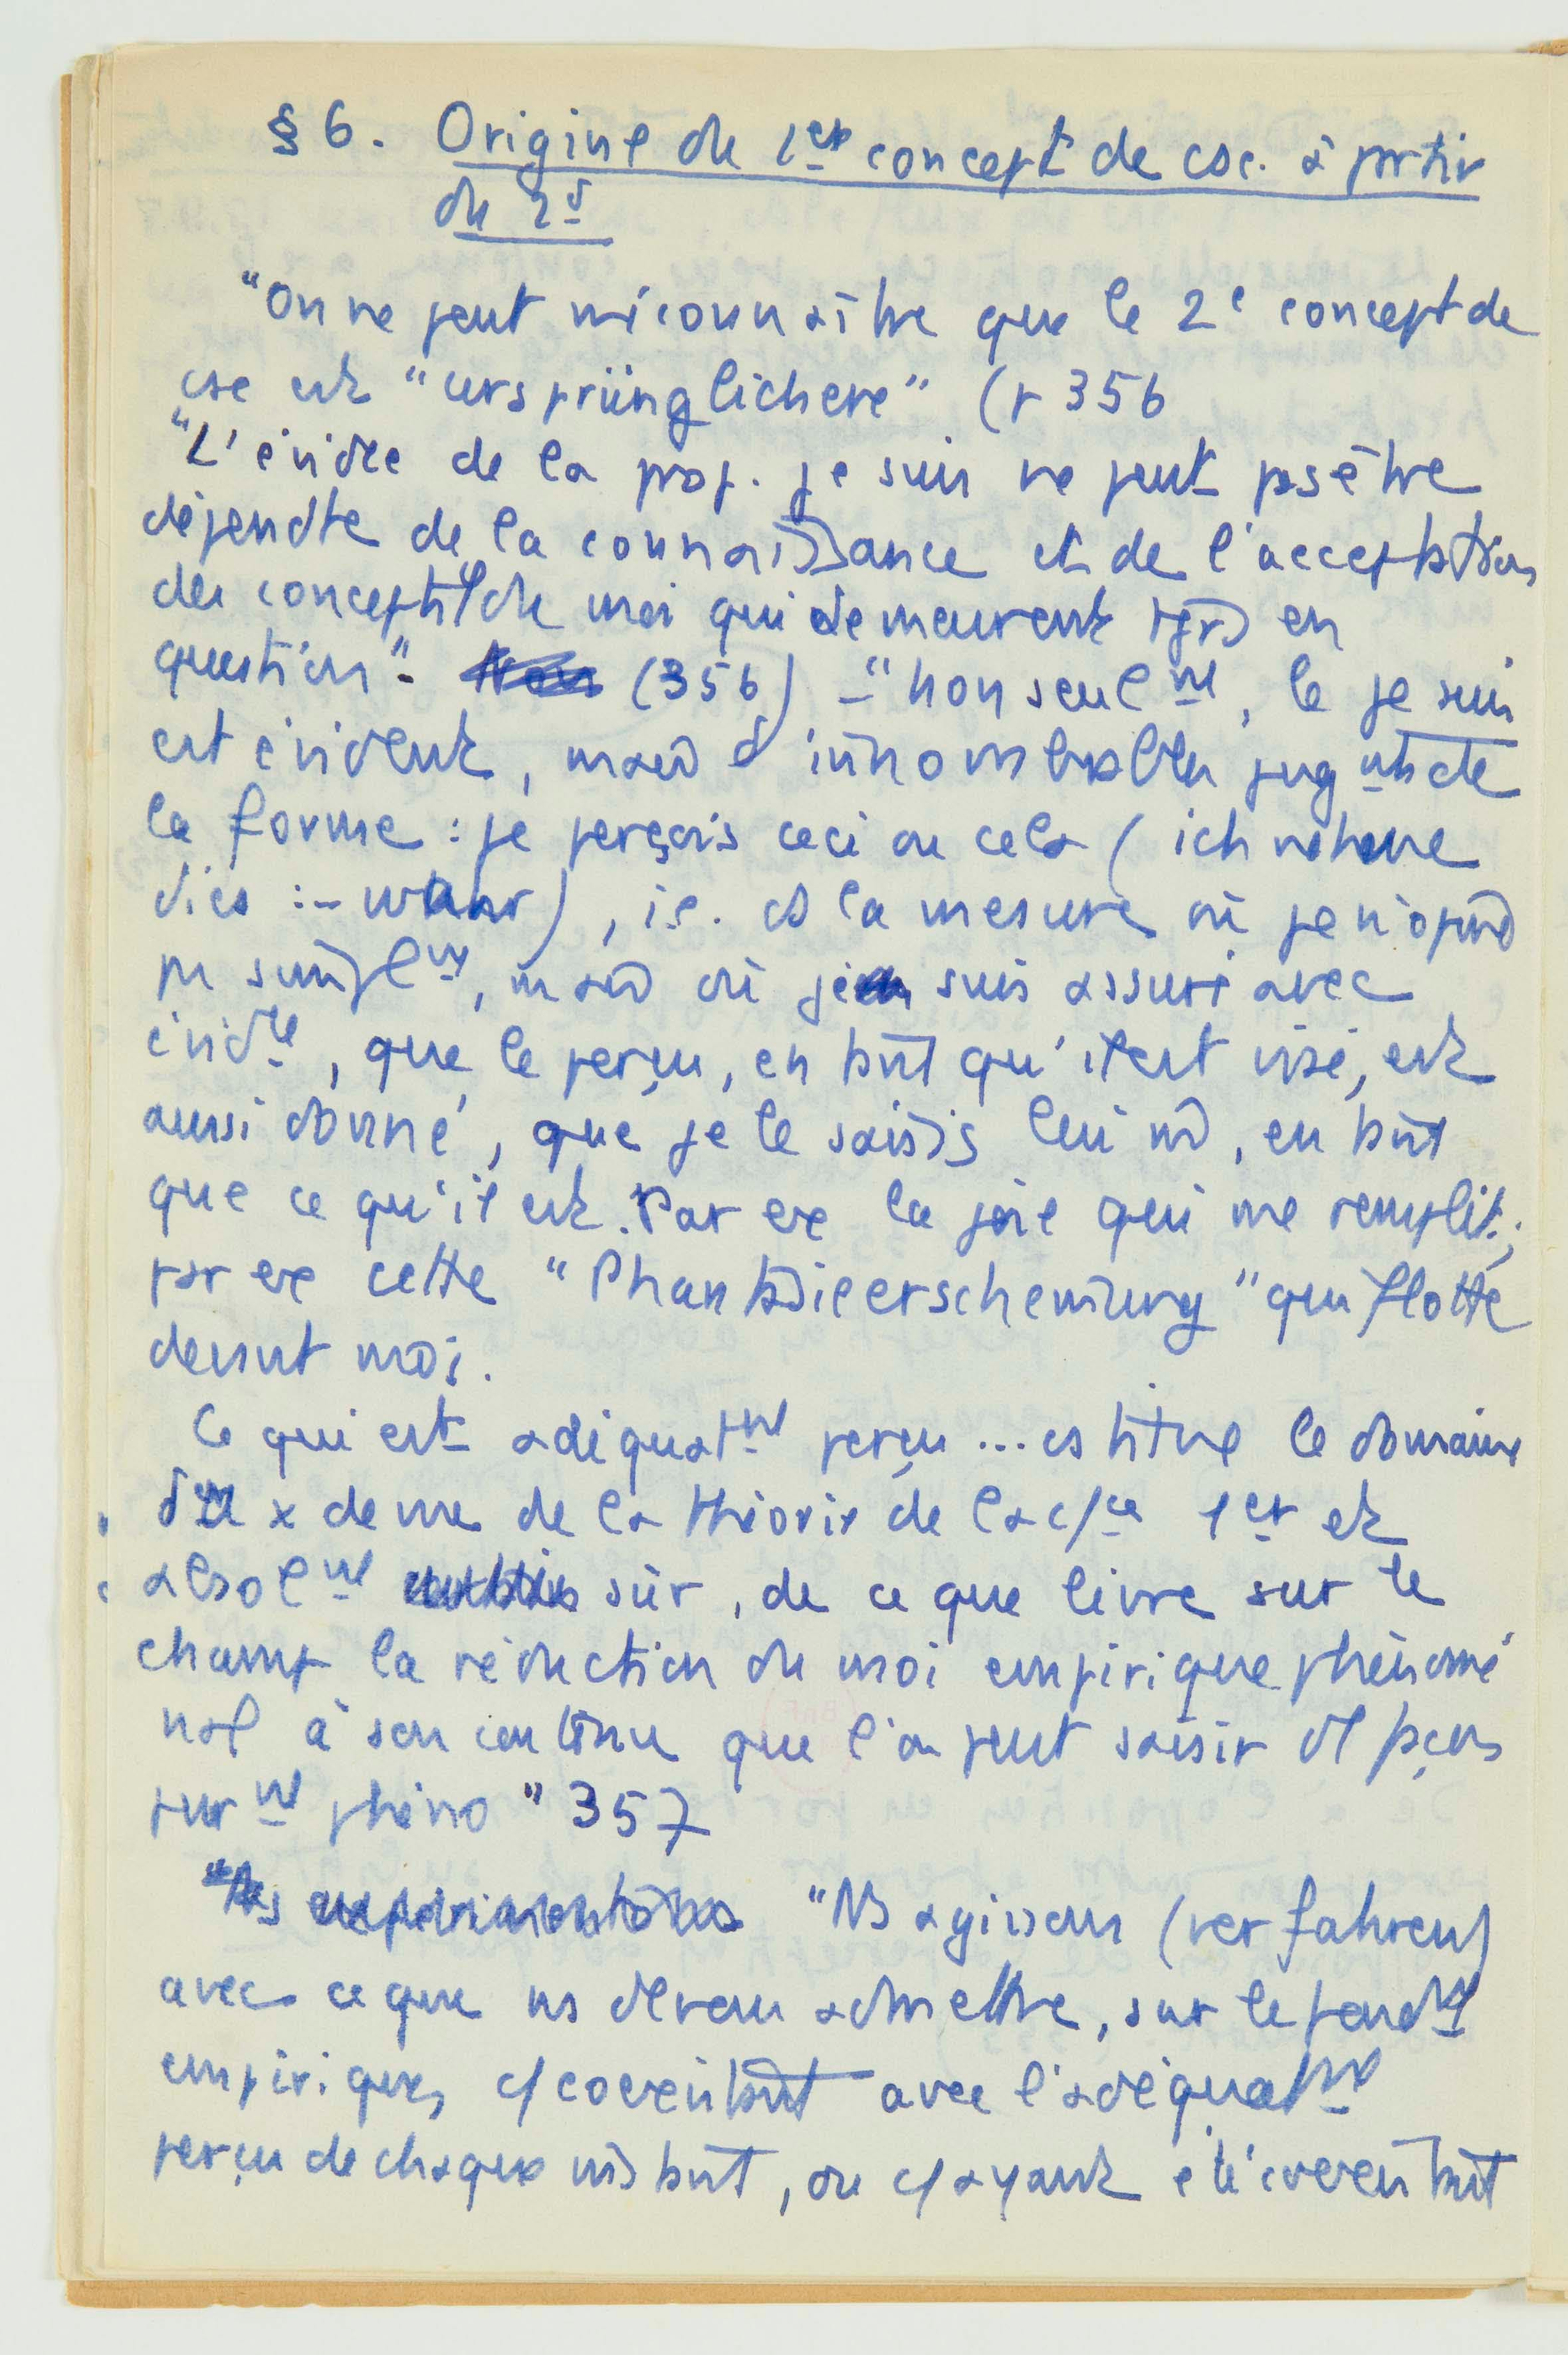 § 6. Origine du 1er concept de csc. à partir
du 2d
"On ne peut méconnaître que le 2e concept de
csc est "ursprünglichere" (p 356
"L'évidce de la prop. je suis ne peut pas être
dépendte de la connaissance et de l'acceptation
des concepts du moi qui demeurent tjrs en
question". (356) – "non seulmt, le je suis
est évident, mais d'innombrables jugmts de
la forme : je perçois ceci ou cela (ich nehme
dies :– wahr), i.e. ds la mesure où je n'opine
pas simplmt, mais où je suis assuré avec
évidce, que le perçu, en tant qu'il est visé, est
aussi donné, que je le saisis lui m, en tant
que ce qu'il est. Par ex la joie qui me remplit ;
par ex cette "Phantasieerscheinung" qui flotte
devant moi.
Ce qui est adéquatmt perçu ... cstitue le domaine
du x de vue de la théorie de la c/ce 1er et
absolmt sûr, de ce que livre sur le
champ la réduction du moi empirique phénomé
nal à son contenu que l'on peut saisir de façon
purmt phéno " 357
"Ns agissons (verfahren)
avec ce que ns devons admettre, sur le fondmt
empirique, c/ coexistant avec l'adéquatmt
perçu de chaque instant, ou c/ ayant été coexistant